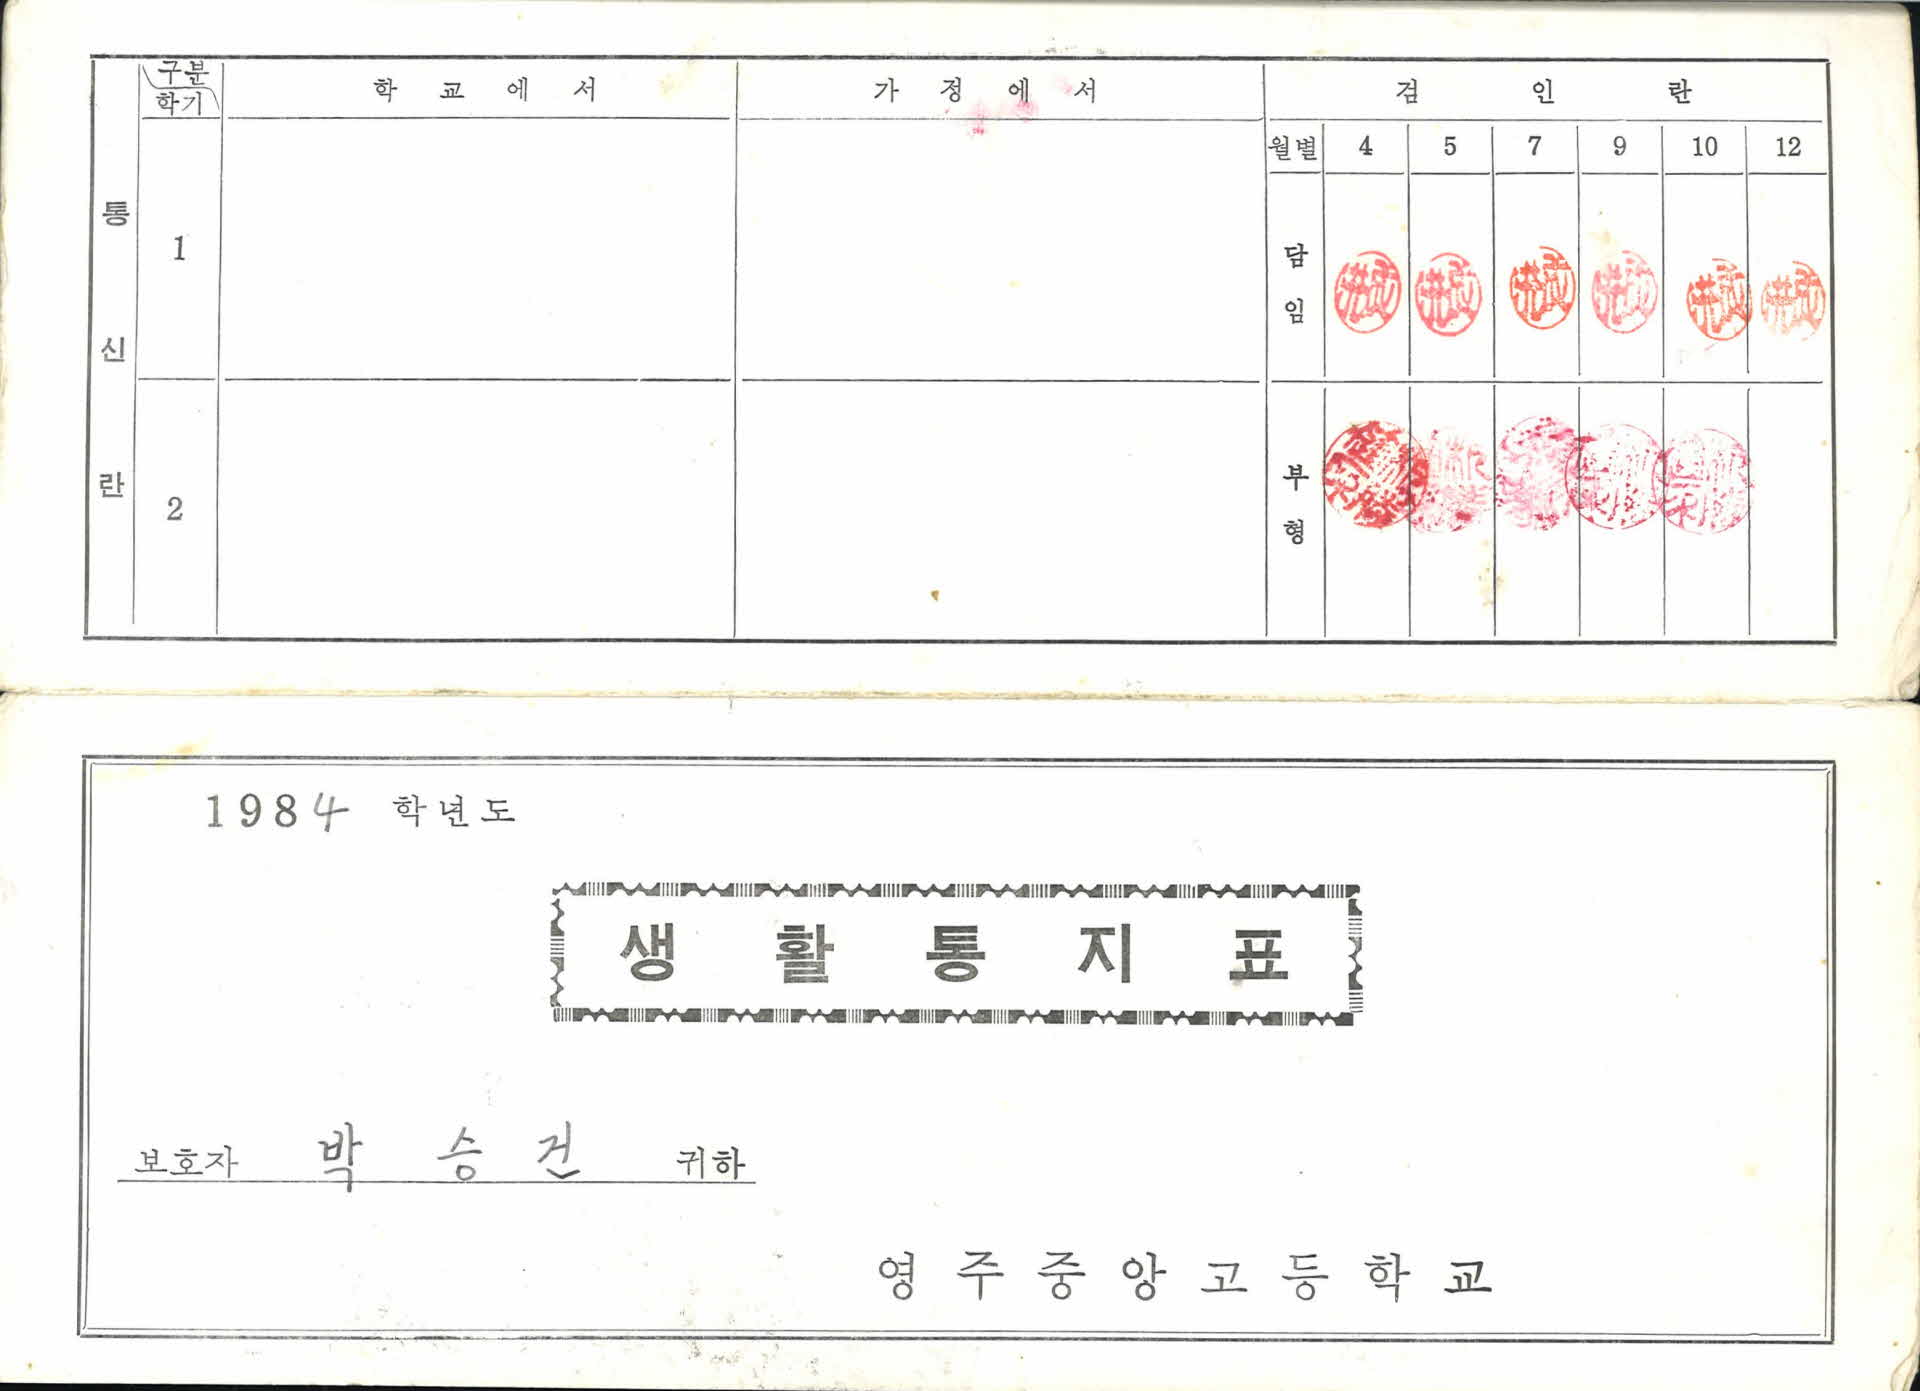 구분
학기
학교에서
가정에서
검인란
월별 4 5 7 9 10 12
통신란
1
2
담임
부형
1984 학년도
생활통지표
보호자 박승건 귀하
영주중앙고등학교